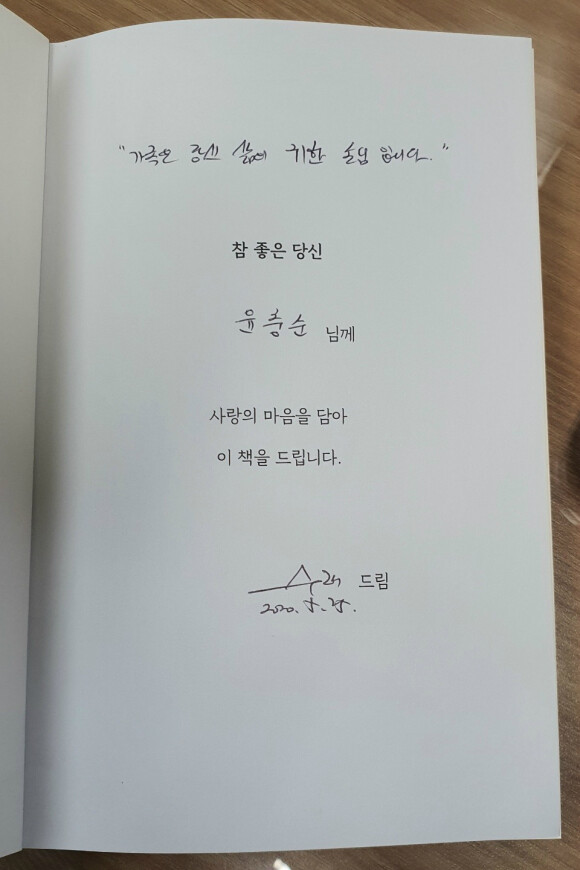 "가족은 당신 삶의 귀한 손님 입니다."
참 좋은 당신
윤충순 님께
사랑의 마음을 담아
이 책을 드립니다.
드림
2020. 5. 25.